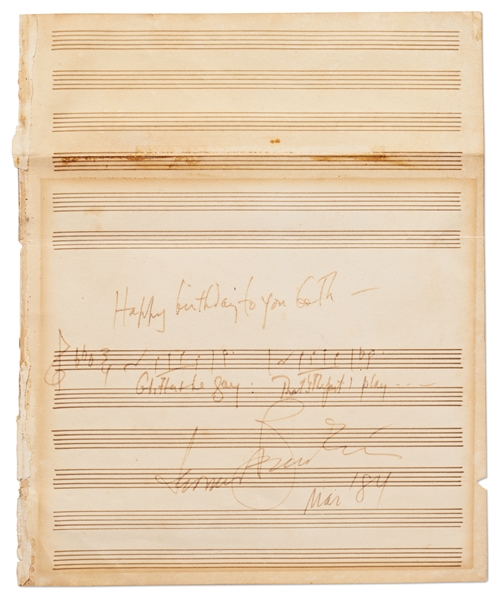 Happy birthday to you both —
Glitter & be gay: That's the part I play - - -
Leonard Bernstein
Mar '84